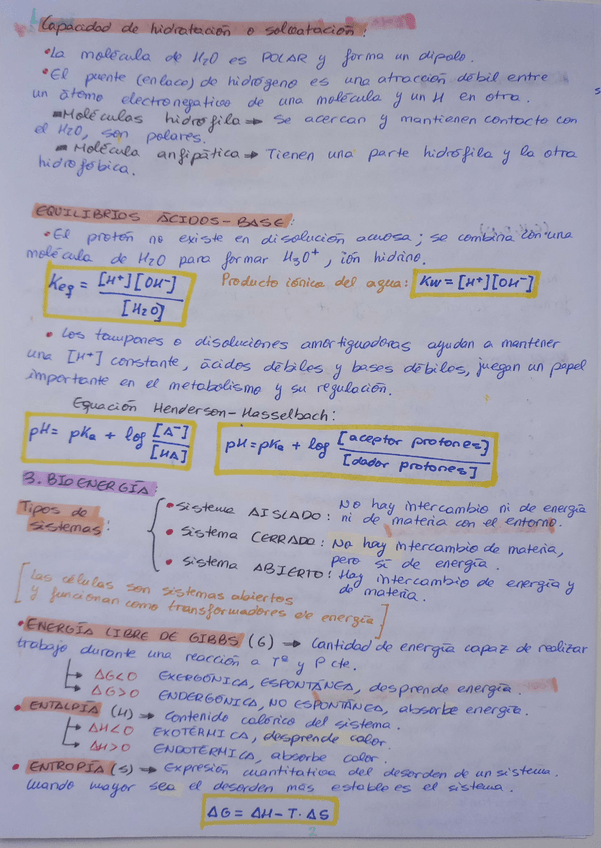 Capacidad de hidratación o solvatación:
• La molécula de H₂O es POLAR y forma un dipolo.
• El puente (enlace) de hidrógeno es una atracción débil entre
un átomo electronegativo de una molécula y un H en otra.
- Moléculas hidrófila → Se acercan y mantienen contacto con
el H₂O, son polares.
- Molécula anfipática → Tienen una parte hidrófila y la otra
hidrofóbica.
EQUILIBRIOS ÁCIDOS-BASE:
• El protón no existe en disolución acuosa; se combina con una
molécula de H₂O para formar H₃O⁺, ión hidrino.
Keq = [H⁺][OH⁻] / [H₂O] Producto iónico del agua: Kw = [H⁺][OH⁻]
• Los tampones o disoluciones amortiguadoras ayudan a mantener
una [H⁺] constante, ácidos débiles y bases débiles, juegan un papel
importante en el metabolismo y su regulación.
Equación Henderson-Hasselbach:
pH = pKa + log [A⁻] / [HA] pH = pKa + log [aceptor protones] / [dador protones]
3. BIOENERGÍA:
Tipos de
sistemas:
• Sistema AISLADO: No hay intercambio ni de energía
ni de materia con el entorno.
• Sistema CERRADO: No hay intercambio de materia,
pero sí de energía.
• Sistema ABIERTO: Hay intercambio de energía y
de materia.
[Las células son sistemas abiertos
y funcionan como transformadores de energía]
• ENERGÍA LIBRE DE GIBBS (G) → Cantidad de energía capaz de realizar
trabajo durante una reacción a Tª y P cte.
↳ ΔG<0 EXERGÓNICA, ESPONTÁNEA, desprende energía.
↳ ΔG>0 ENDERGÓNICA, NO ESPONTÁNEA, absorbe energía.
• ENTALPÍA (H) → Contenido calórico del sistema.
↳ ΔH<0 EXOTÉRMICA, desprende calor.
↳ ΔH>0 ENDOTÉRMICA, absorbe calor.
• ENTROPÍA (S) → Expresión cuantitativa del desorden de un sistema.
Cuando mayor sea el desorden más estable es el sistema.
ΔG = ΔH - T · ΔS
2